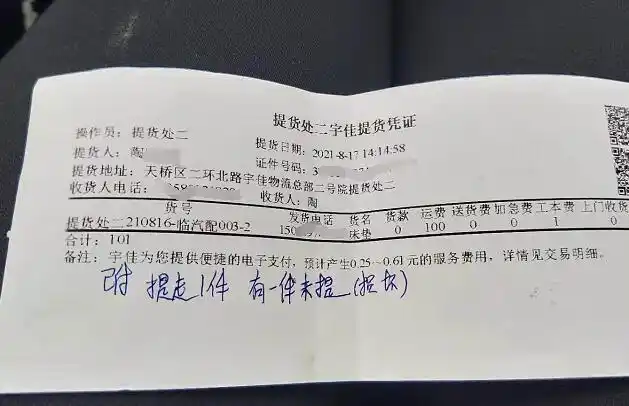 提货处二宇佳提货凭证
操作员: 提货处二
提货日期: 2021-8-17 14:14:58
提货人: 陶
证件号码: 3
提货地址: 天桥区二环北路宇佳物流总部二号院提货处二
收货人电话:
收货人: 陶
货号 发货电话 货名 货款 运费 送货费 加急费 工本费 上门收货
提货处二210816-临汽配003-2 150 床垫 0 100 0 0 1 0
合计: 101
备注: 宇佳为您提供便捷的电子支付, 预计产生0.25~0.61元的服务费用, 详情见交易明细。
附 提走1件 有一件未提(损坏)